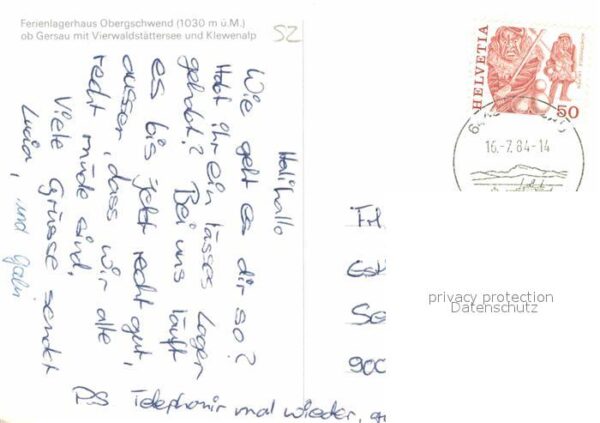 Ferienlagerhaus Obergschwend (1030 m ü.M.)
ob Gersau mit Vierwaldstättersee und Klewenalp
SZ
Halihallo
Wie geht es dir so?
Habt ihr ein lässes Lager
gehabt? Bei uns läuft
es bis jetzt recht gut,
ausser, dass wir alle
recht müde sind.
Viele Grüsse sendet
Lucia, und Gabi
PS Telephonir mal wieder,
HELVETIA
50
16.-7.84-14
900
privacy protection
Datenschutz